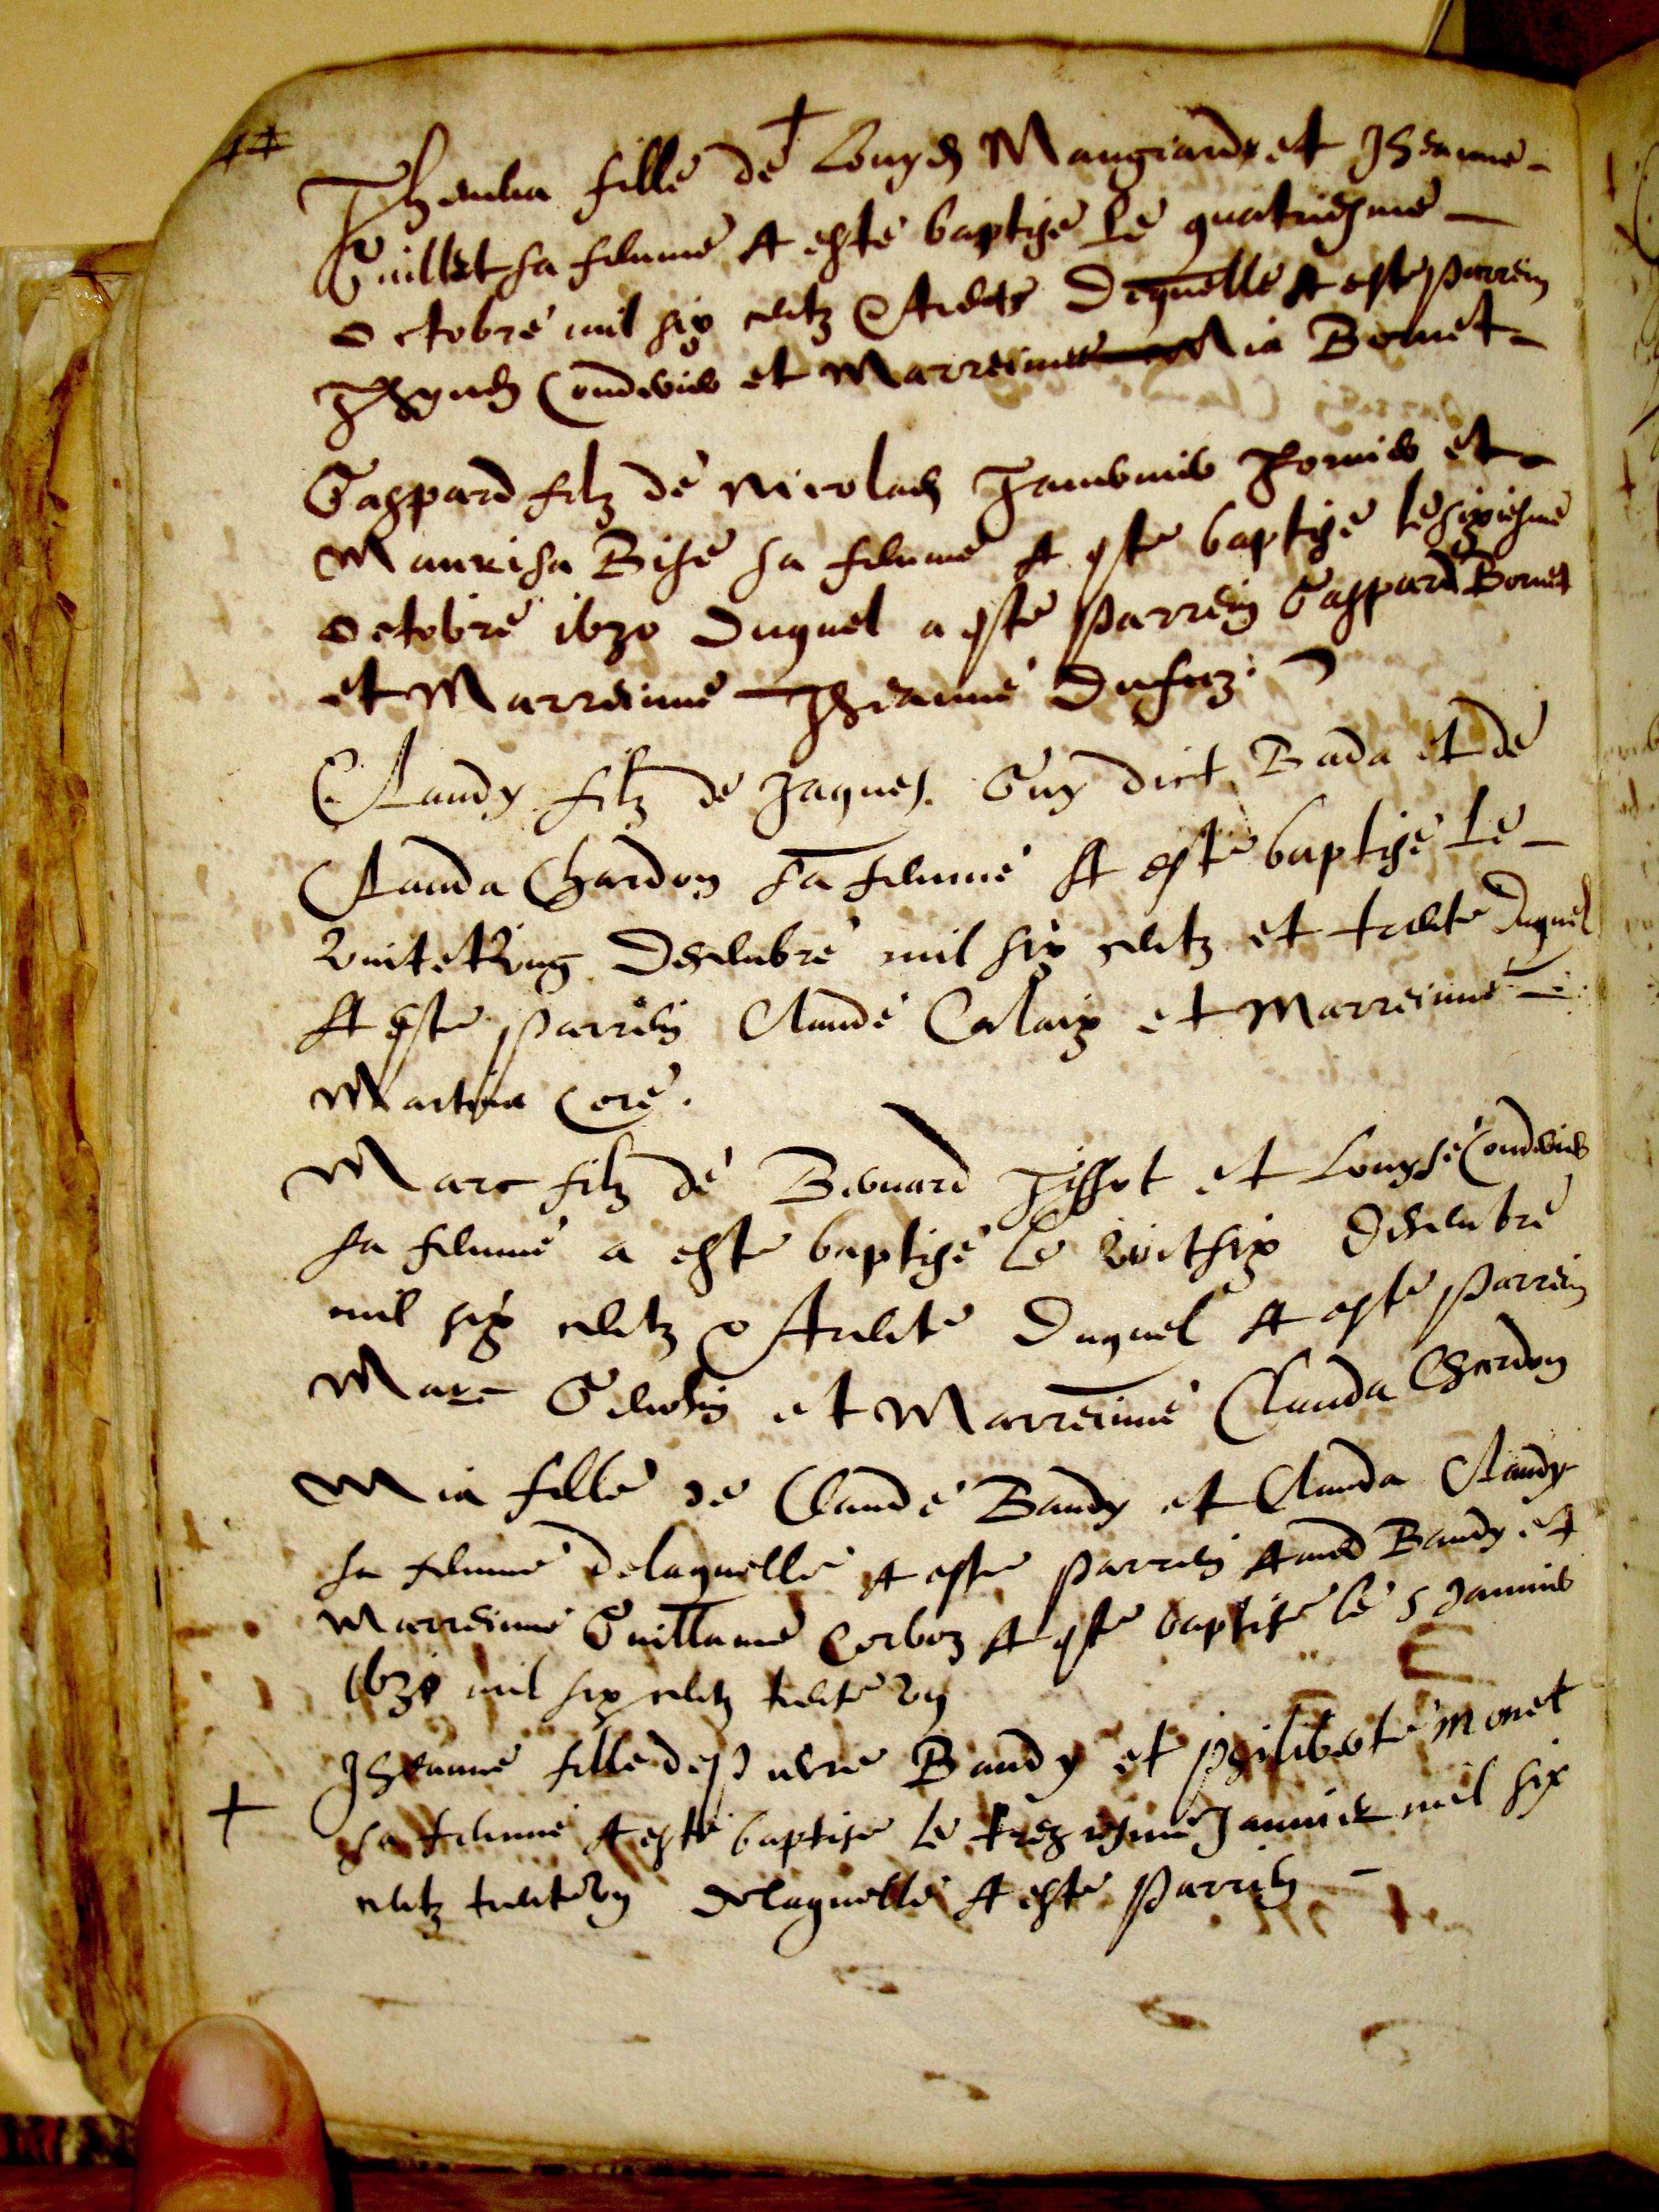 Thevenba fille de Louys Mangeard et Jheanne
Guillet sa femme A este baptise le quatriesme
octobre mil six centz & trente Dequelle A este parrein
Condevin et Marreinne Mia Bornet
Gaspard filz de Nicolas et
Maurisa Bise sa femme A este baptise le sixiesme
octobre 1630 Duquel a este parrein Gaspard Bornet
et Marreinne Jheanne Dufez
Claudy filz de Jaques Guy dict Bada et de
Clauda Chardon sa femme A este baptise le
vintetung Desembre mil six centz et trente Duquel
A este parrein Claude Calaix et Marreinne
Martina Core.
Marc filz de Bernard Tissot et Louyse Condevin
sa femme a este baptise le vintsix Desembre
mil six centz & trente Duquel A este parrein
Marc et Marreinne Clauda Chardon
Mia fille de Claude Baudy et Clauda Claudy
sa femme delaquelle A este parrein Amed Baudy et
Marreinne Guillama Corboz A este baptise le 5 Janvier
1631 mil six centz trente un
Jheanne fille de pierre Baudy et philiberte Monet
sa femme A este baptise le treziesme Janvier mil six
centz trente un delaquelle A este parrein